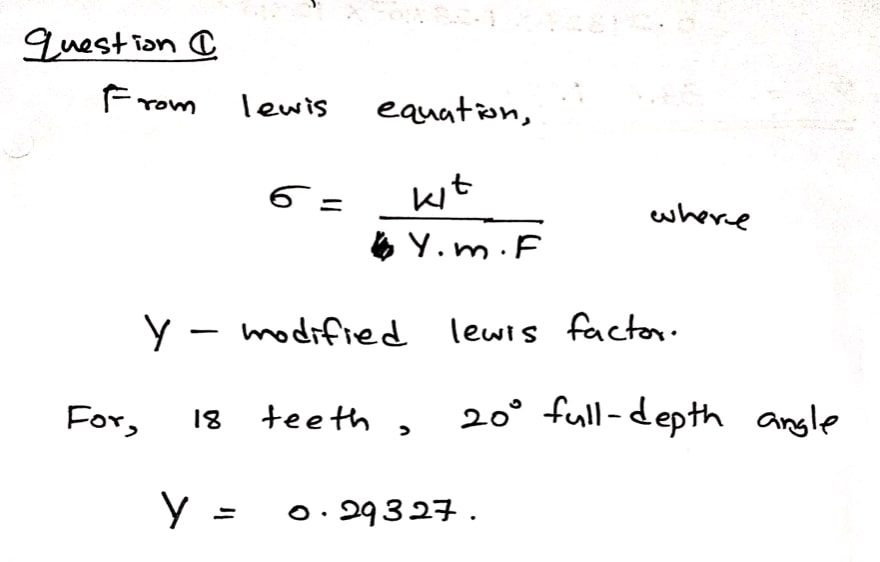 Question ①
From lewis equation,
σ = Wt / Y.m.F where
Y - modified lewis factor.
For, 18 teeth , 20° full-depth angle
Y = 0.29327.